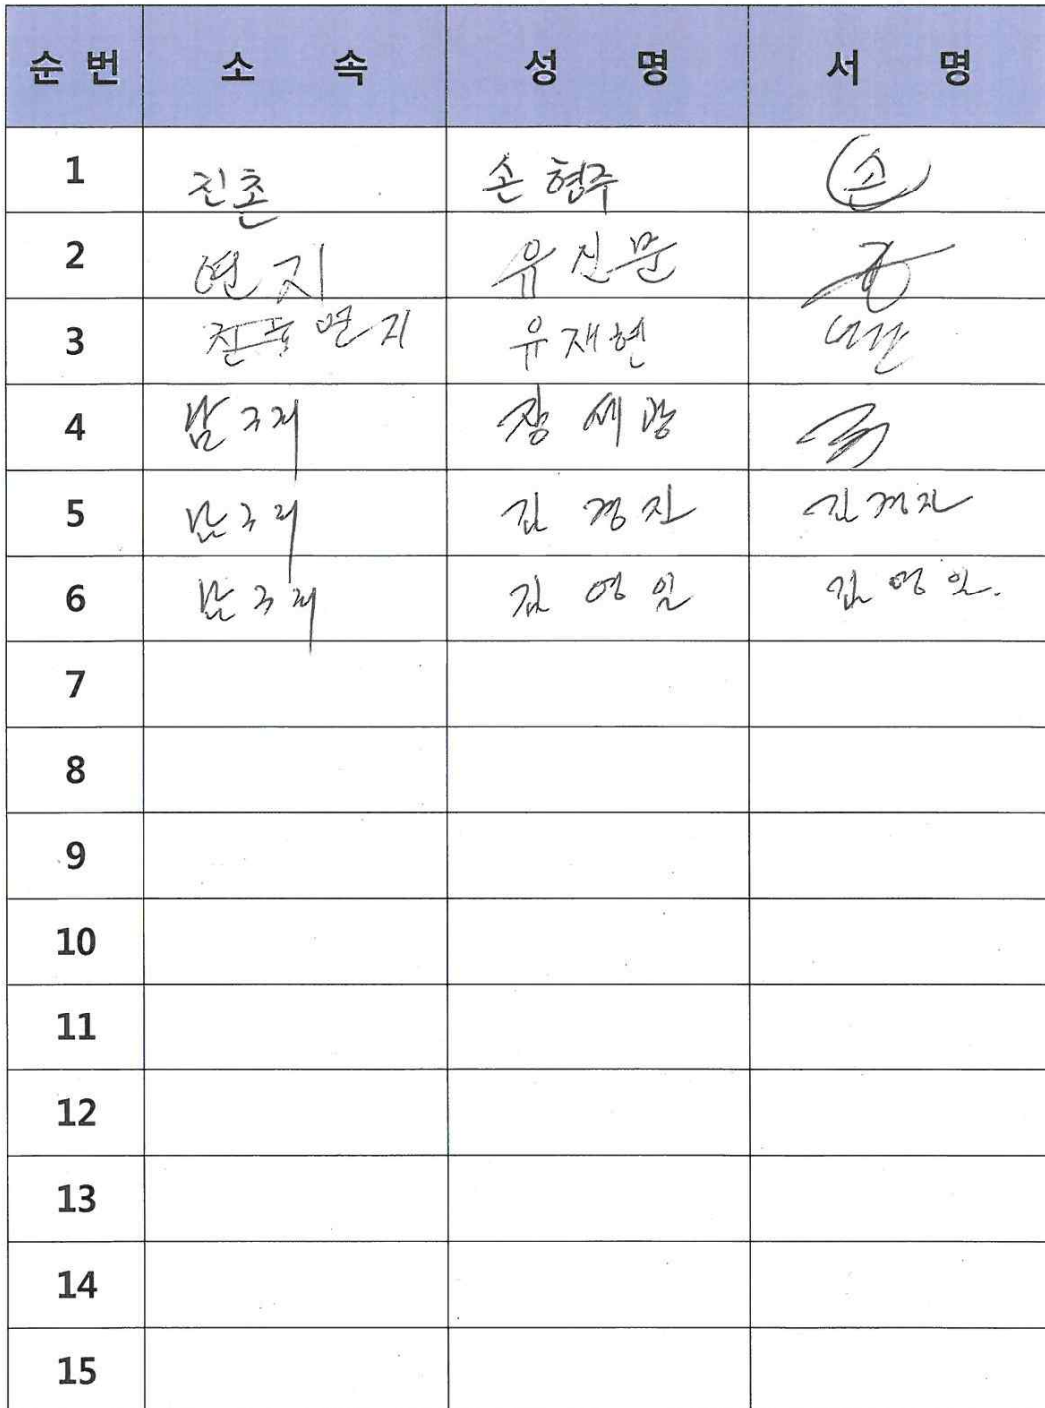 순 번 소 속 성 명 서 명
1 진촌 손 형주 손
2 연지 유신문
3 연지 유재현
4 남규리 장세광
5 남규리 김경자 김경자
6 남규리 김영일 김영일.
7
8
9
10
11
12
13
14
15